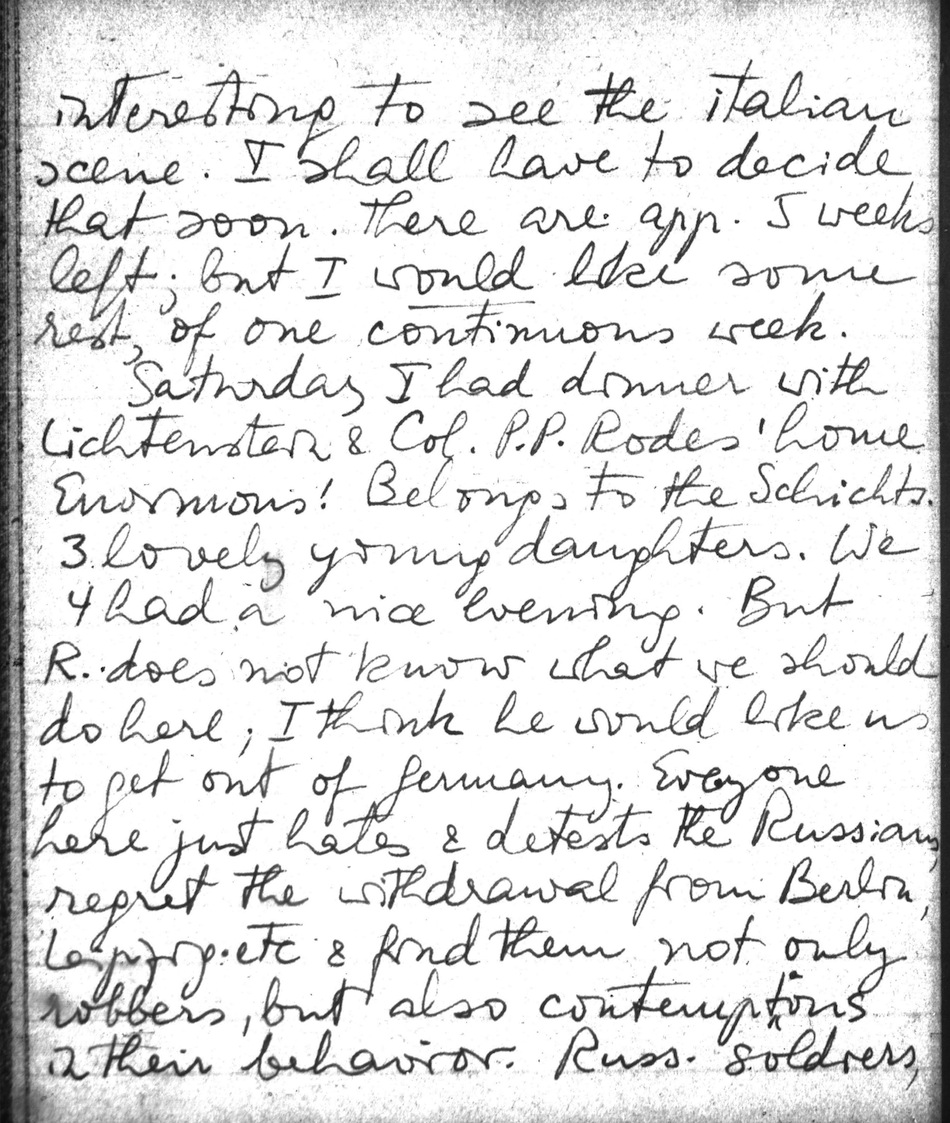 interesting to see the italian
scene. I shall have to decide
that soon. There are app. 5 weeks
left; but I would like some
rest, of one continuous week.
Saturday I had dinner with
Lichtenstein & Col. P.P. Rodes' home
Enormous! Belongs to the Schichts.
3 lovely young daughters. We
4 had a nice evening. But
R. does not know what we should
do here; I think he would like us
to get out of Germany. Everyone
here just hates & detests the Russians,
regret the withdrawal from Berlin,
Leipzig. etc & find them not only
robbers, but also contemptious
in their behavior. Russ. soldiers,